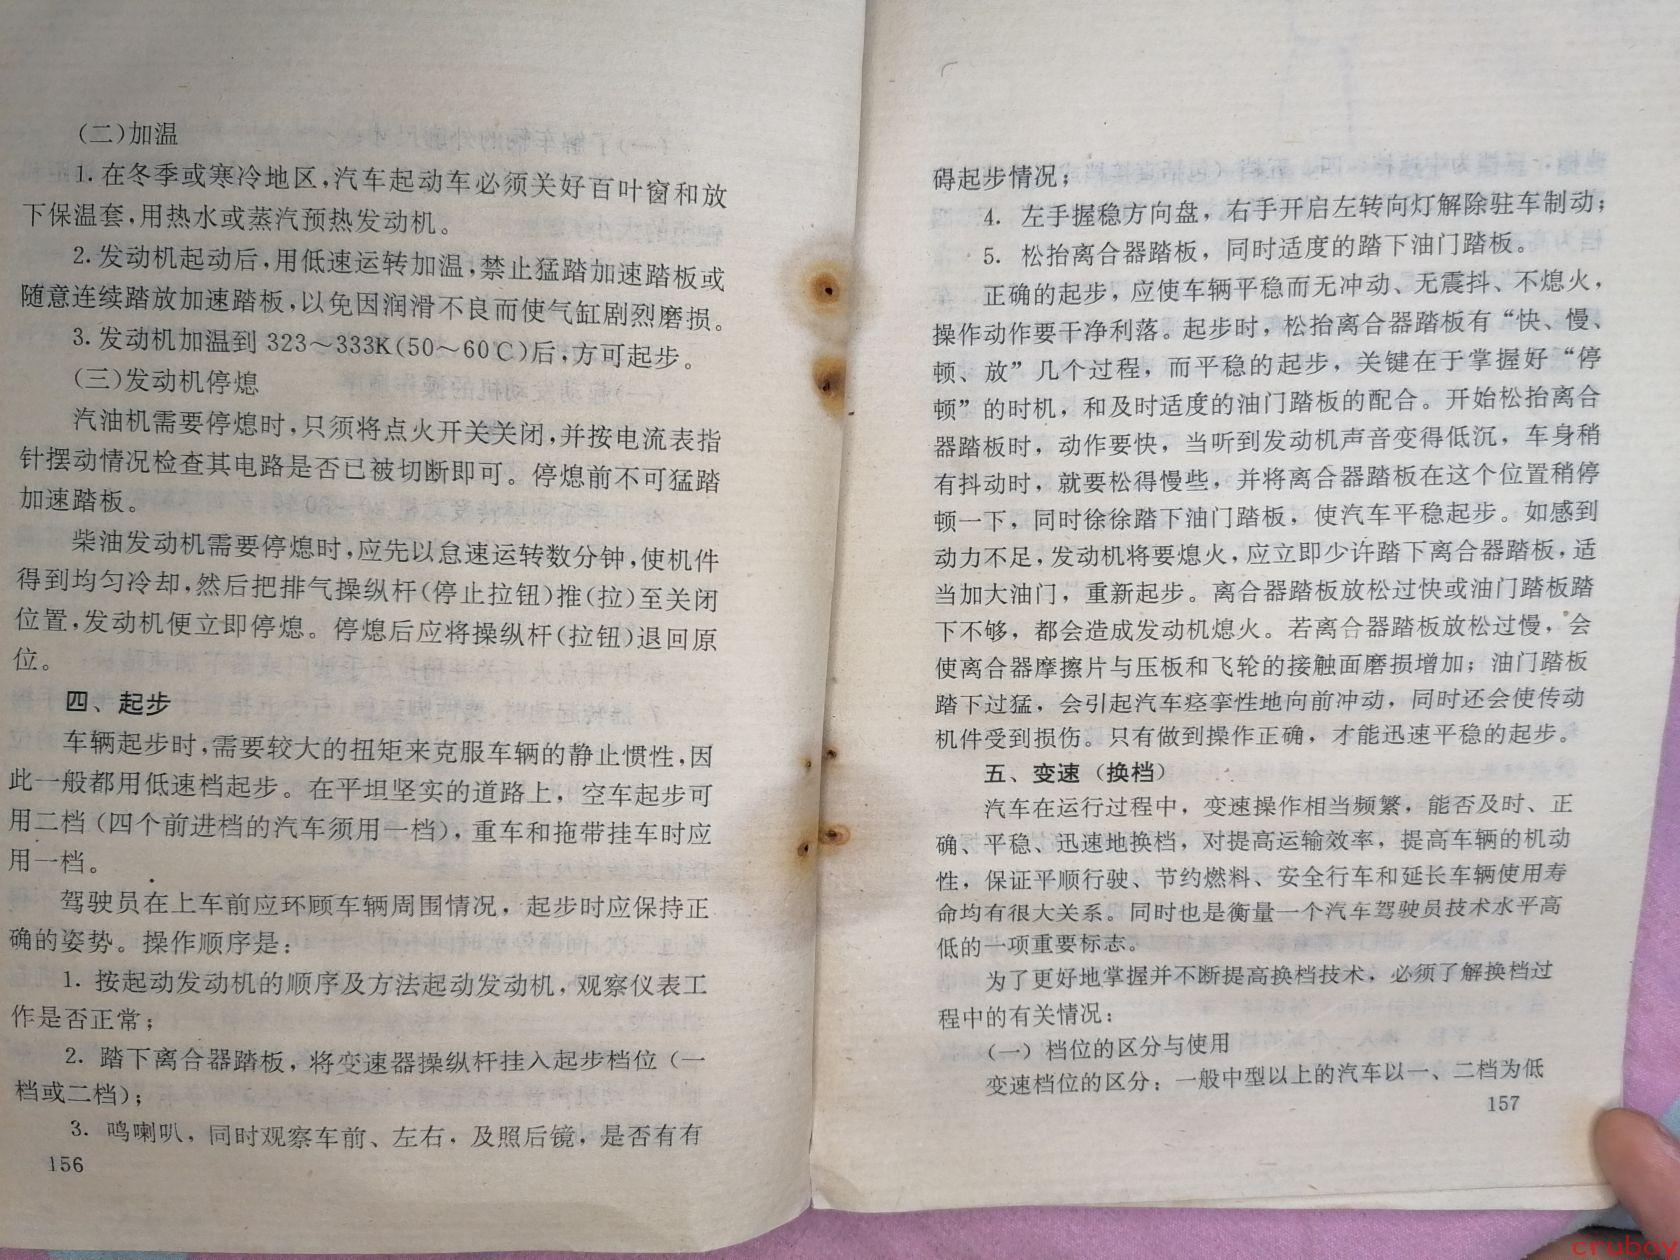 (二)加温
1.在冬季或寒冷地区,汽车起动车必须关好百叶窗和放
下保温套,用热水或蒸汽预热发动机。
2.发动机起动后,用低速运转加温,禁止猛踏加速踏板或
随意连续踏放加速踏板,以免因润滑不良而使气缸剧烈磨损。
3.发动机加温到 323～333K(50～60℃)后,方可起步。
(三)发动机停熄
汽油机需要停熄时,只须将点火开关关闭,并按电流表指
针摆动情况检查其电路是否已被切断即可。停熄前不可猛踏
加速踏板。
柴油发动机需要停熄时,应先以怠速运转数分钟,使机件
得到均匀冷却,然后把排气操纵杆(停止拉钮)推(拉)至关闭
位置,发动机便立即停熄。停熄后应将操纵杆(拉钮)退回原
位。
四、起步
车辆起步时,需要较大的扭矩来克服车辆的静止惯性,因
此一般都用低速档起步。在平坦坚实的道路上，空车起步可
用二档(四个前进档的汽车须用一档)，重车和拖带挂车时应
用一档。
驾驶员在上车前应环顾车辆周围情况，起步时应保持正
确的姿势。操作顺序是：
1. 按起动发动机的顺序及方法起动发动机，观察仪表工
作是否正常；
2. 踏下离合器踏板，将变速器操纵杆挂入起步档位（一
档或二档)；
3. 鸣喇叭，同时观察车前、左右，及照后镜，是否有有
156
碍起步情况；
4. 左手握稳方向盘，右手开启左转向灯解除驻车制动；
5. 松抬离合器踏板，同时适度的踏下油门踏板。
正确的起步，应使车辆平稳而无冲动、无震抖、不熄火，
操作动作要干净利落。起步时，松抬离合器踏板有“快、慢、
顿、放”几个过程，而平稳的起步，关键在于掌握好“停
顿”的时机，和及时适度的油门踏板的配合。开始松抬离合
器踏板时，动作要快，当听到发动机声音变得低沉，车身稍
有抖动时，就要松得慢些，并将离合器踏板在这个位置稍停
顿一下，同时徐徐踏下油门踏板，使汽车平稳起步。如感到
动力不足，发动机将要熄火，应立即少许踏下离合器踏板，适
当加大油门，重新起步。离合器踏板放松过快或油门踏板踏
下不够，都会造成发动机熄火。若离合器踏板放松过慢，会
使离合器摩擦片与压板和飞轮的接触面磨损增加；油门踏板
踏下过猛，会引起汽车痉挛性地向前冲动，同时还会使传动
机件受到损伤。只有做到操作正确，才能迅速平稳的起步。
五、变速（换档）
汽车在运行过程中，变速操作相当频繁，能否及时、正
确、平稳、迅速地换档，对提高运输效率，提高车辆的机动
性，保证平顺行驶、节约燃料、安全行车和延长车辆使用寿
命均有很大关系。同时也是衡量一个汽车驾驶员技术水平高
低的一项重要标志。
为了更好地掌握并不断提高换档技术，必须了解换档过
程中的有关情况：
（一）档位的区分与使用
变速档位的区分：一般中型以上的汽车以一、二档为低
157
cruboy